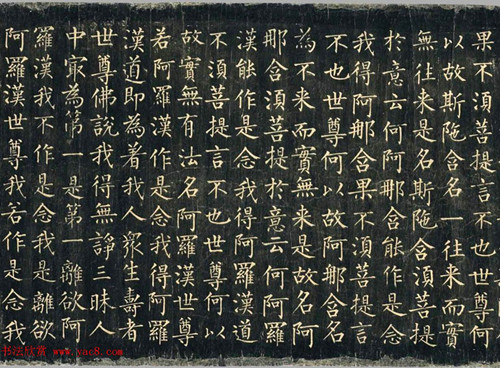 果不須菩提言不也世尊何
以故斯陁含名一往来而實
無往来是名斯陁含須菩提
於意云何阿那含能作是念
我得阿那含果不須菩提言
不也世尊何以故阿那含名
為不来而實無来是故名阿
那含須菩提於意云何阿羅
漢能作是念我得阿羅漢道
不須菩提言不也世尊何以
故實無有法名阿羅漢世尊
若阿羅漢作是念我得阿羅
漢道即為着我人衆生壽者
世尊佛說我得無諍三昧人
中冣為第一是第一離欲阿
羅漢我不作是念我是離欲
阿羅漢世尊我若作是念我
书法欣赏 www.yac8.com